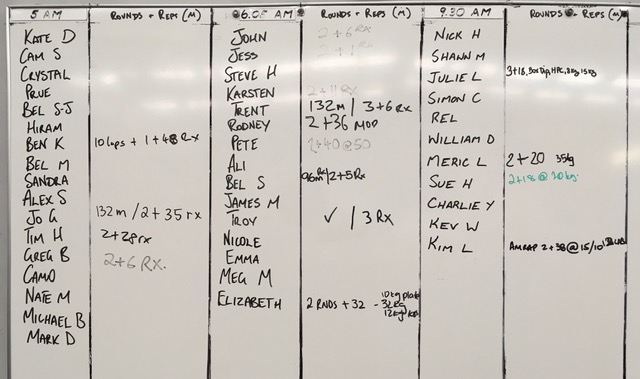 5 AM ROUNDS + REPS (M) 6.05 AM ROUNDS + REPS (M) 9.30 AM ROUNDS + REPS (M)
KATE D JOHN 2+6 RX NICK H
CAM S JESS 2+1 RX SHANN M
CRYSTAL STEVE H JULIE L 3+18,
PRUE KARSTEN 2+11 RX SIMON C
BEL S-J TRENT 132m / 3+6 RX REL
HIRAM RODNEY 2+36 MOD WILLIAM D
BEN K 10 laps + 1+48 Rx PETE 2+40 @ 50 MERIC L 2+20 35kg
BEL M ALI SUE H 2+18 @ 20 kg.
SANDRA BEL S 96m RX/2+5Rx CHARLIE Y
ALEX S JAMES M KEV W
JO G 132m / 2+35 rx TROY ✓ / 3 Rx KIM L AMRAP 2+38 @ 15/10
TIM H 2+28 rx NICOLE
GREG B 2+6 RX. EMMA
CAMO MEG M
NATE M ELIZABETH 2 RNDS + 32 10kg plate - 32kg 12kg
MICHAEL B
MARK D